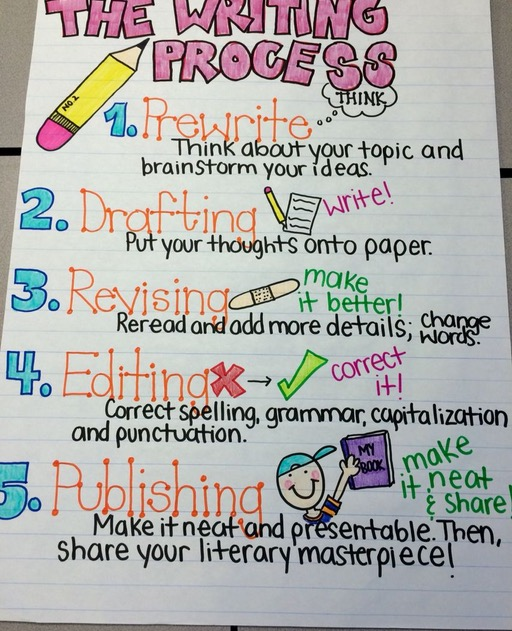 THE WRITING
PROCESS
NO.2
THINK
1. Prewrite
Think about your topic and
brainstorm your ideas.
2. Drafting
write!
Put your thoughts onto paper.
3. Revising
make
it better!
Reread and add more details; change
words.
4. Editing
correct
it!
Correct spelling, grammar, capitalization
and punctuation.
5. Publishing
MY
BOOK
make
it neat
& share!
Make it neat and presentable. Then,
share your literary masterpiece!